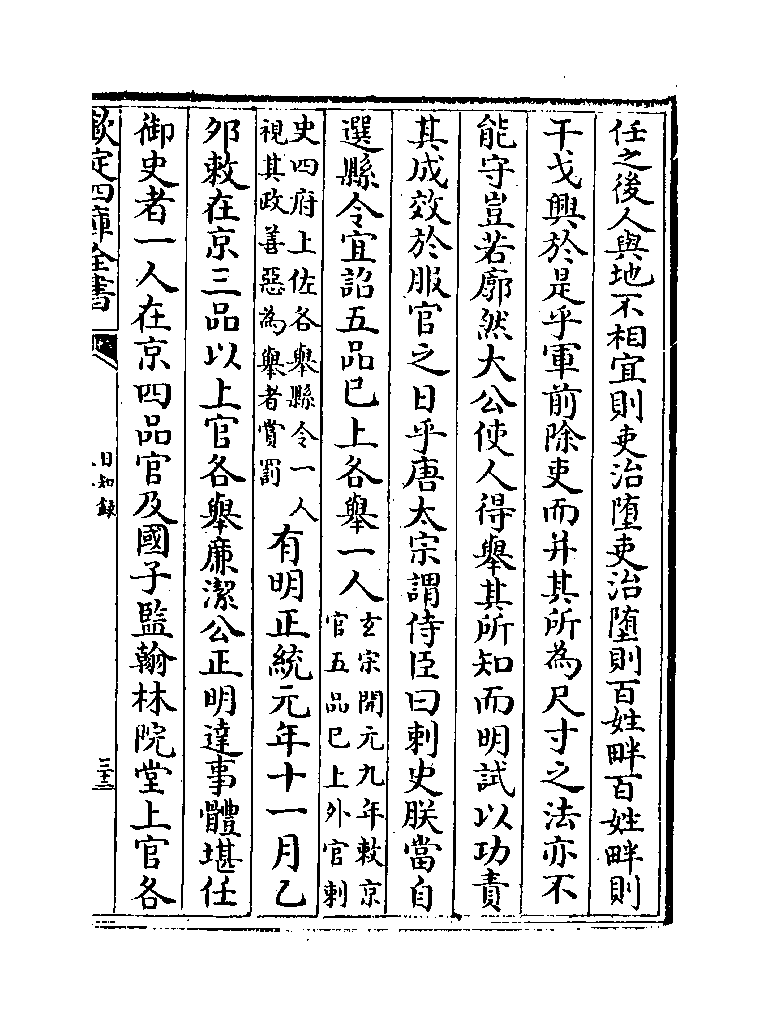 任之後人與地不相宜則吏治墮吏治墮則百姓畔百姓畔則
干戈興於是乎軍前除吏而并其所為尺寸之法亦不
能守豈若廓然大公使人得舉其所知而明試以功責
其成效於服官之日乎唐太宗謂侍臣曰刺史朕當自
選縣令宜詔五品已上各舉一人玄宗開元九年敕京官五品已上外官刺
史四府上佐各舉縣令一人視其政善惡為舉者賞罰有明正統元年十一月乙
夘敕在京三品以上官各舉廉潔公正明達事體堪任
御史者一人在京四品官及國子監翰林院堂上官各
欽定四庫全書
日知錄
三十三